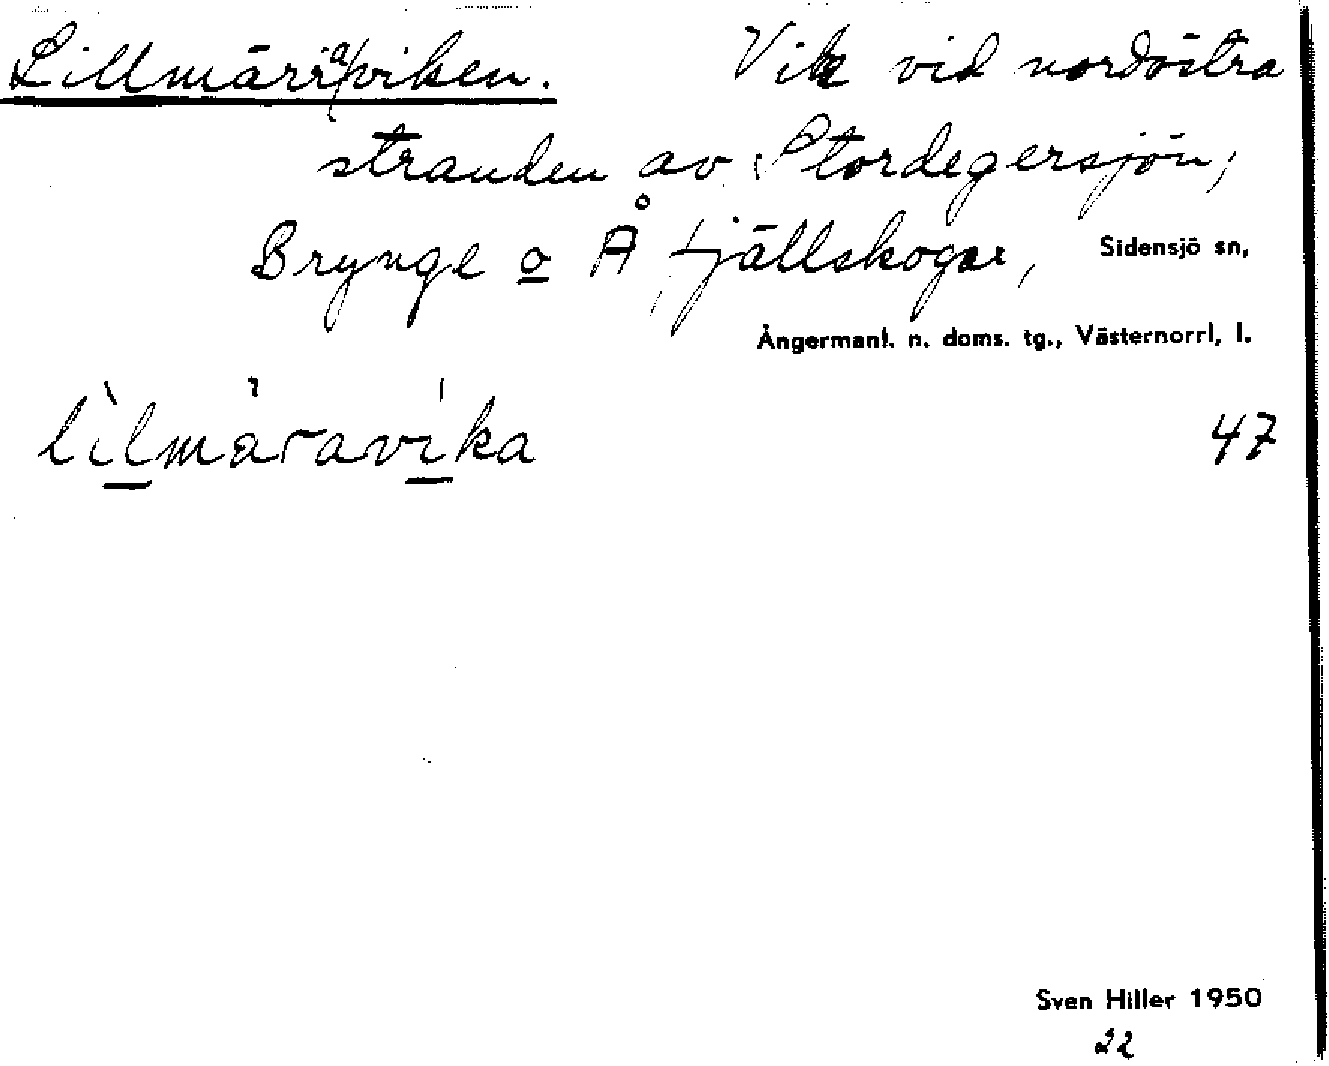 Lillmärraviken. Vik vid nordöstra
stranden av Stordegersjön,
Brynge o Å fjällskogar, Sidensjö sn,
Ångermanl. n. doms. tg., Västernorrl, l.
lilmäravika 47
Sven Hiller 1950
22